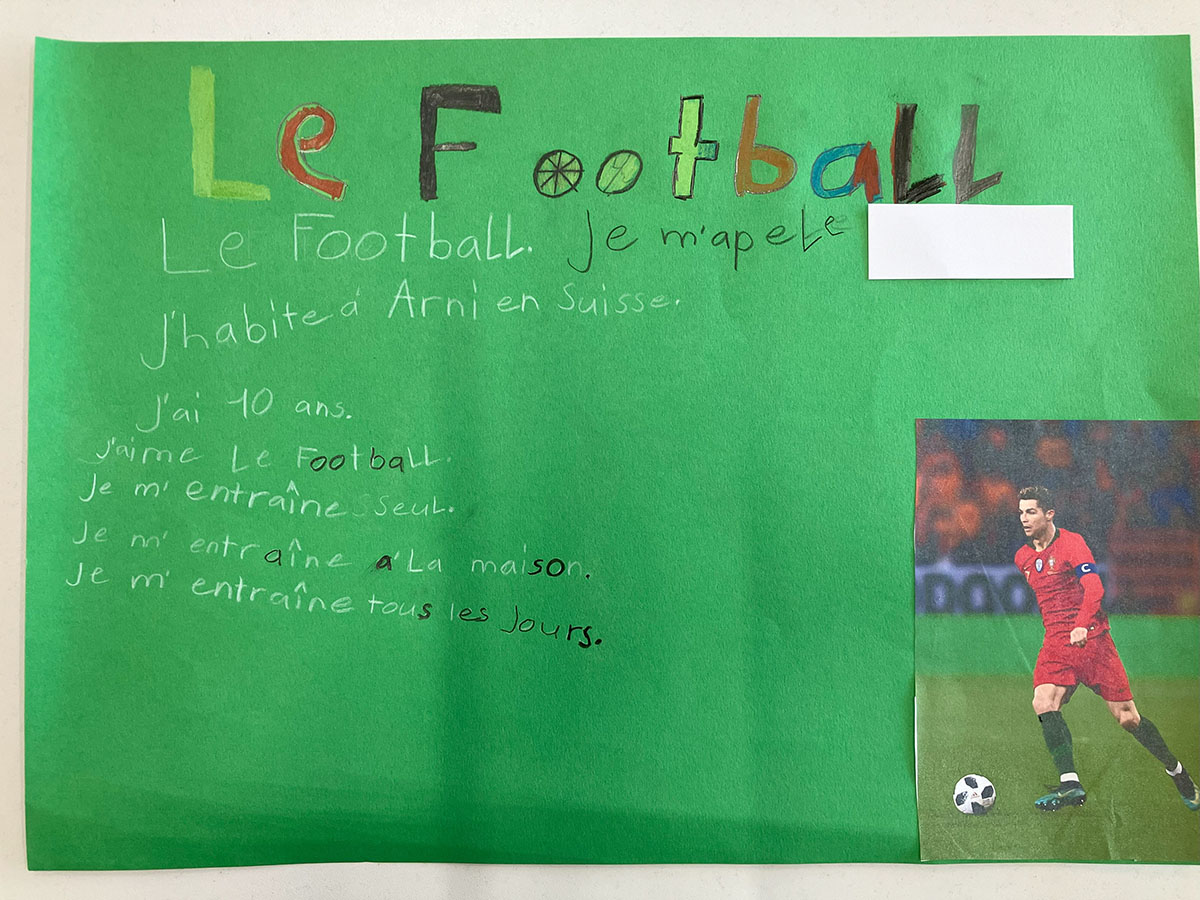 Le Football
Le Football. Je m'apele
J'habite à Arni en Suisse.
J'ai 10 ans.
J'aime Le Football.
Je m'entraîne seul.
Je m'entraîne à La maison.
Je m'entraîne tous les Jours.
C